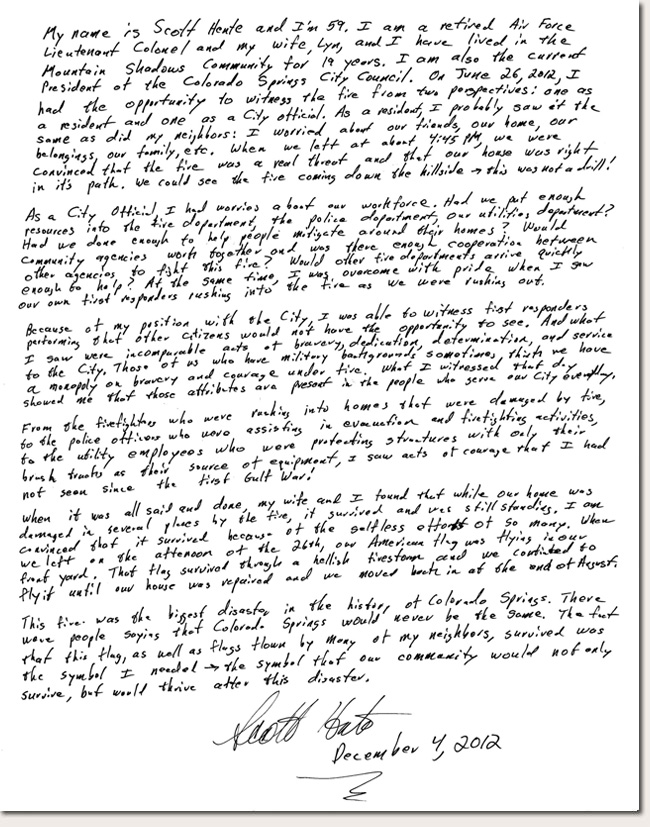 My name is Scott Hente and I'm 59. I am a retired Air Force
Lieutenant Colonel and my wife, Lyn, and I have lived in the
Mountain Shadows Community for 19 years. I am also the current
President of the Colorado Springs City Council. On June 26, 2012, I
had the opportunity to witness the fire from two perspectives: one as
a resident and one as a City official. As a resident, I probably saw it the
same as did my neighbors: I worried about our friends, our home, our
belongings, our family, etc. When we left at about 4:45 PM, we were
convinced that the fire was a real threat and that our house was right
in it's path. We could see the fire coming down the hillside → this was not a drill!
As a City Official, I had worries about our workforce. Had we put enough
resources into the fire department, the police department, our utilities department?
Had we done enough to help people mitigate around their homes? Would
community agencies work together and was there enough cooperation between
other agencies to fight this fire? Would other fire departments arrive quickly
enough to help? At the same time, I was overcome with pride when I saw
our own first responders rushing into the fire as we were rushing out.
Because of my position with the City, I was able to witness first responders
performing that other citizens would not have the opportunity to see. And what
I saw were incomparable acts of bravery, dedication, determination, and service
to the City. Those of us who have military backgrounds sometimes think we have
a monopoly on bravery and courage under fire. What I witnessed that day
showed me that those attributes are present in the people who serve our City everyday.
From the firefighters who were rushing into homes that were damaged by fire,
to the police officers who were assisting in evacuation and firefighting activities,
to the utility employees who were protecting structures with only their
brush trucks as their source of equipment, I saw acts of courage that I had
not seen since the first Gulf War!
When it was all said and done, my wife and I found that while our home was
damaged in several places by the fire, it survived and was still standing. I am
convinced that it survived because of the selfless efforts of so many. When
we left on the afternoon of the 26th, our American flag was flying in our
front yard. That flag survived through a hellish firestorm and we continued to
fly it until our house was repaired and we moved back in at the end of August.
This fire was the biggest disaster in the history of Colorado Springs. There
were people saying that Colorado Springs would never be the same. The fact
that this flag, as well as flags flown by many of my neighbors, survived was
the symbol I needed → the symbol that our community would not only
survive, but would thrive after this disaster.
Scott Hente
December 4, 2012